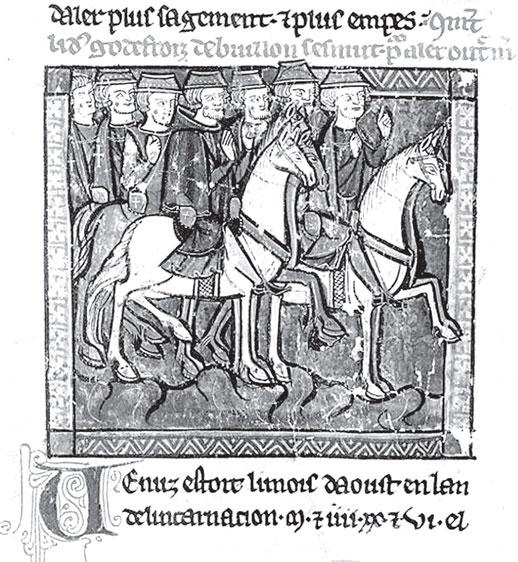 daler plus sagement · ⁊ plus empes · Quant
li dus godefroiz de buillon sesmut · pour aler outre m
Uenuz estoit li mois daoust en lan
de lincarnacion · M · ⁊ iiii · xx · ⁊ Vi · el